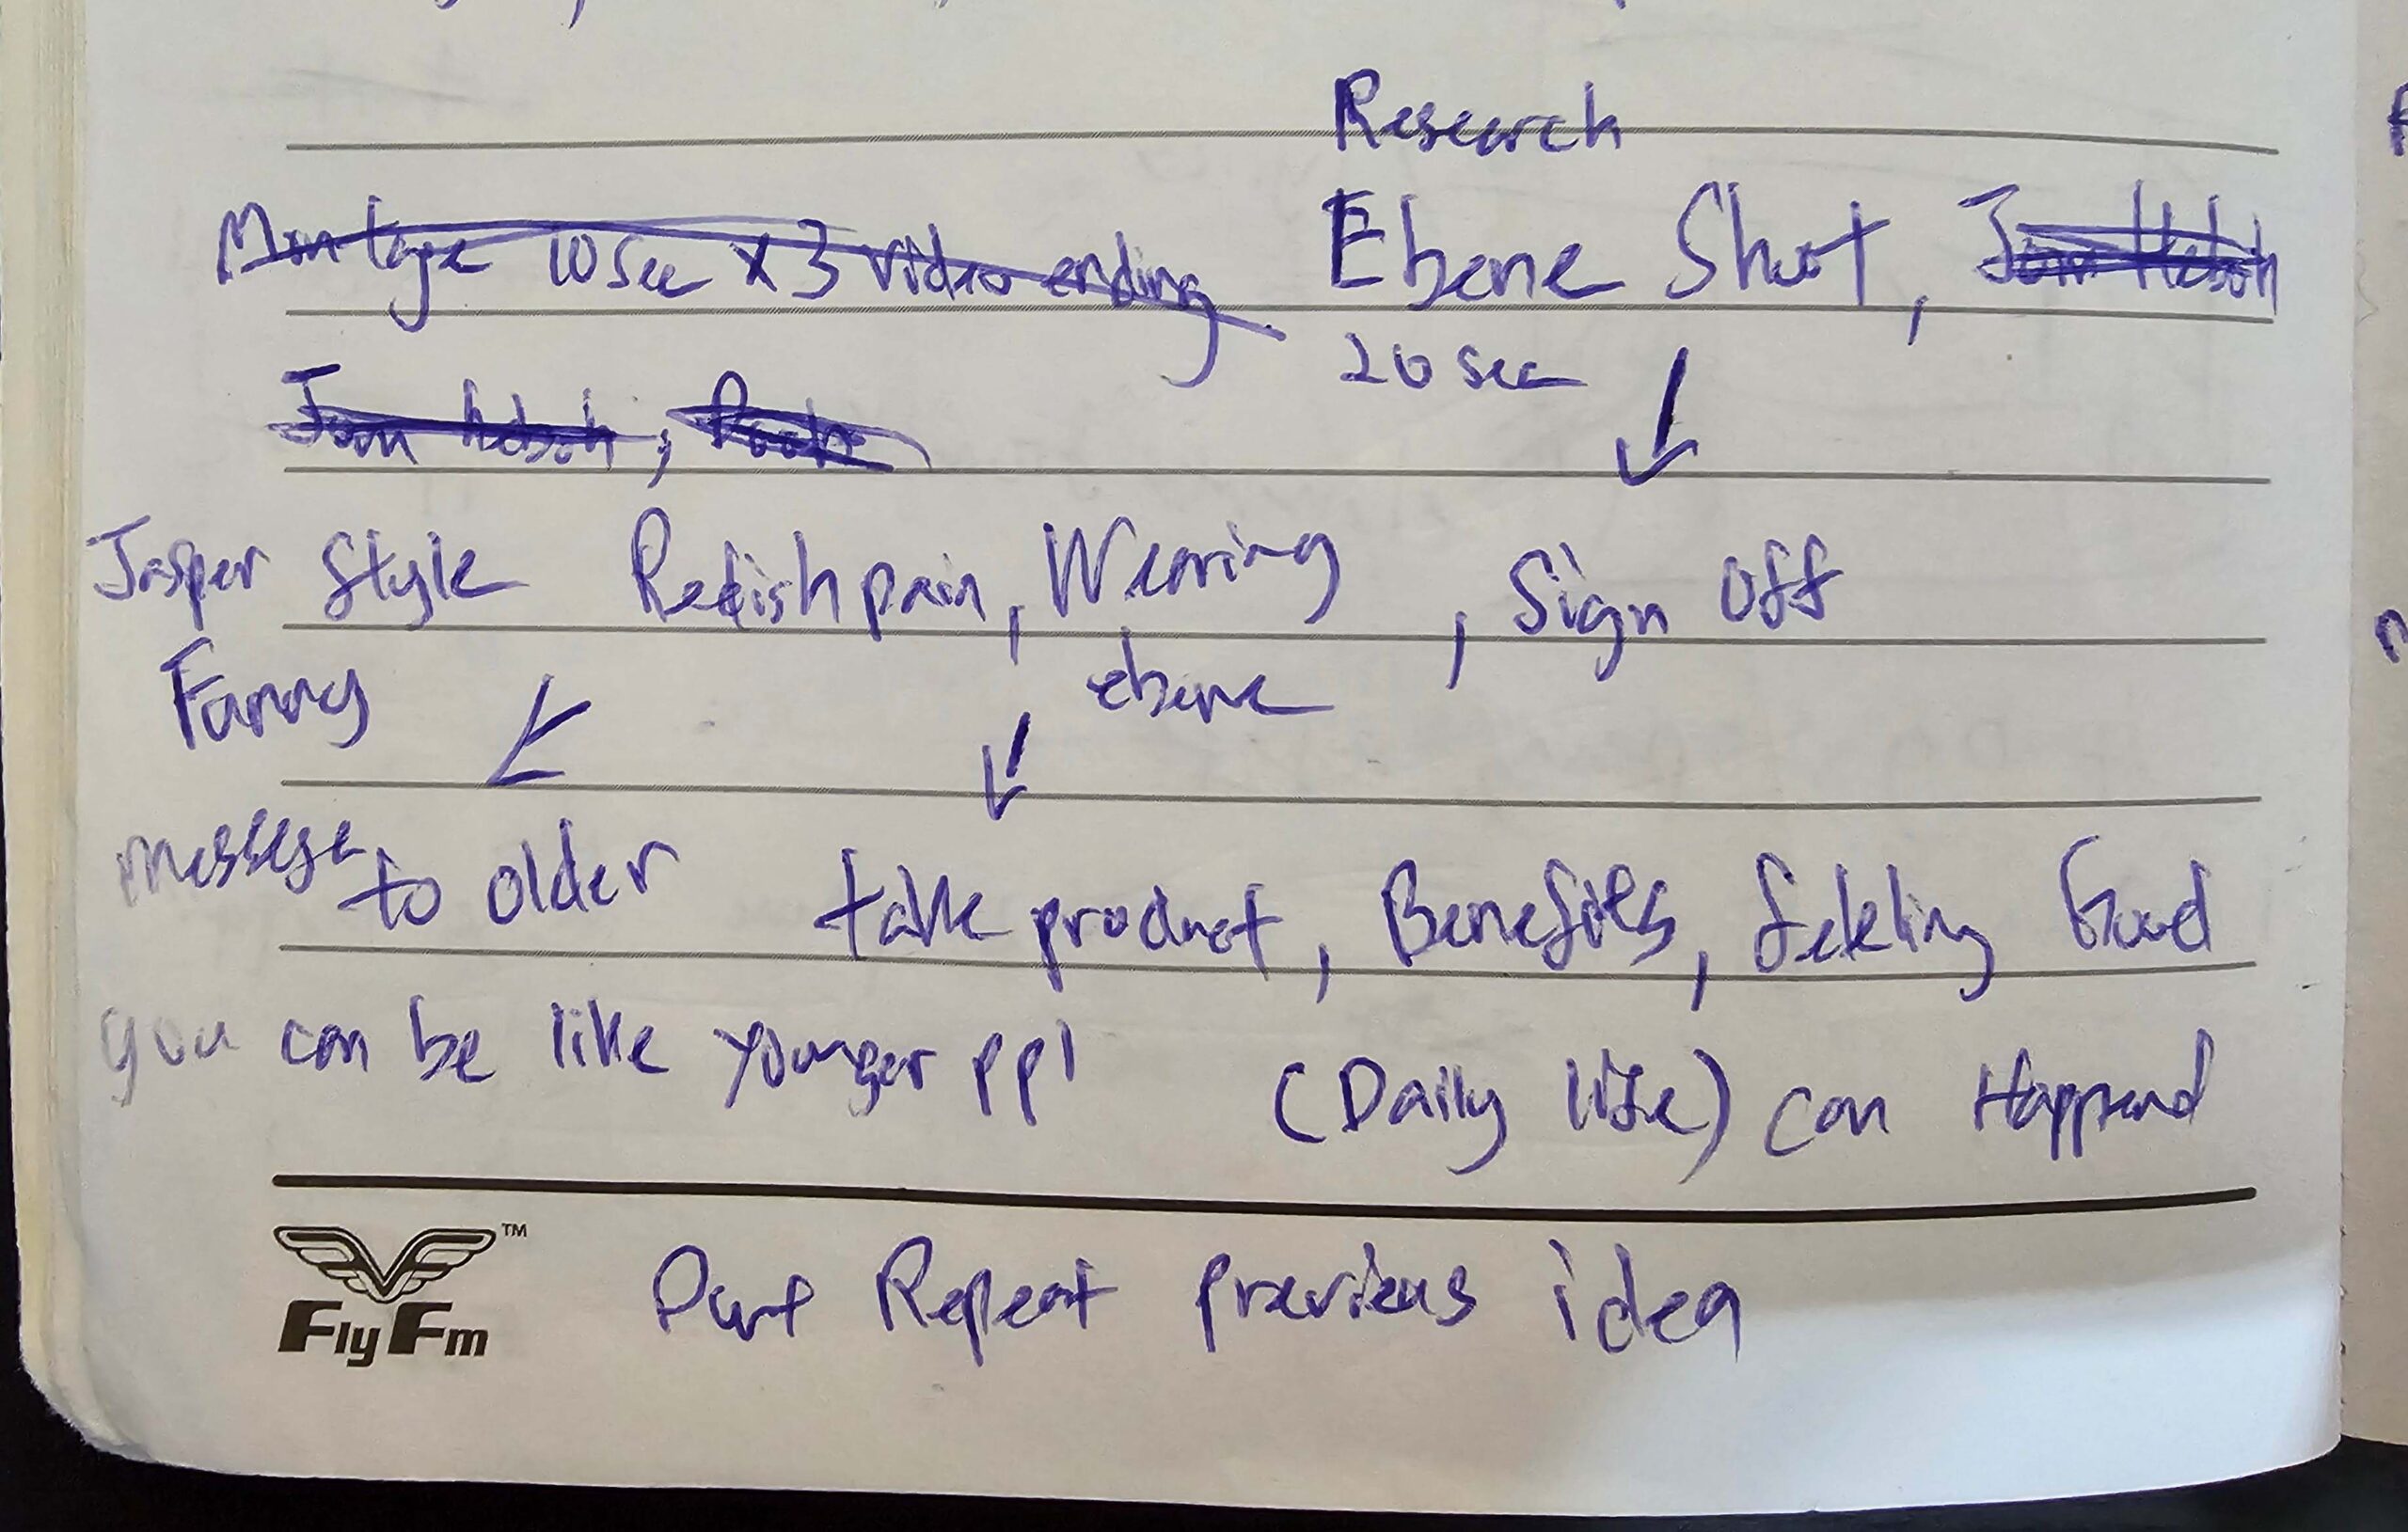 Research
Montage 10 sec x 3 video ending Ebene Shot,
20 sec
Jasper Style Relish pain, Wearing , Sign off
Funny ebene
message to older take product, Benefits, feekling Good
you can be like younger ppl (Daily life) can Happend
Fly Fm TM Dont Repeat previous idea